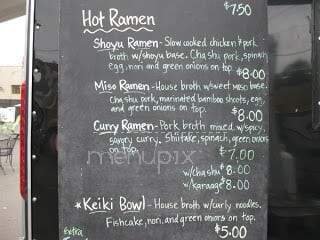 Hot Ramen $7.50
Shoyu Ramen - Slow cooked chicken & pork
broth w/shoyu base. Chashu pork, spinach
egg, nori and green onions on top.
$8.00
Miso Ramen - House broth w/sweet miso base.
Chashu pork, marinated bamboo shoots, egg,
and green onions on top.
$8.00
Curry Ramen - Pork broth mixed w/spicy,
savory curry. Shiitake, spinach, green onions
on top. $7.00
menupix
w/chashu $8.00
w/karaage $8.00
*Keiki Bowl - House broth w/curly noodles.
Fishcake, nori, and green onions on top.
$5.00
Extra